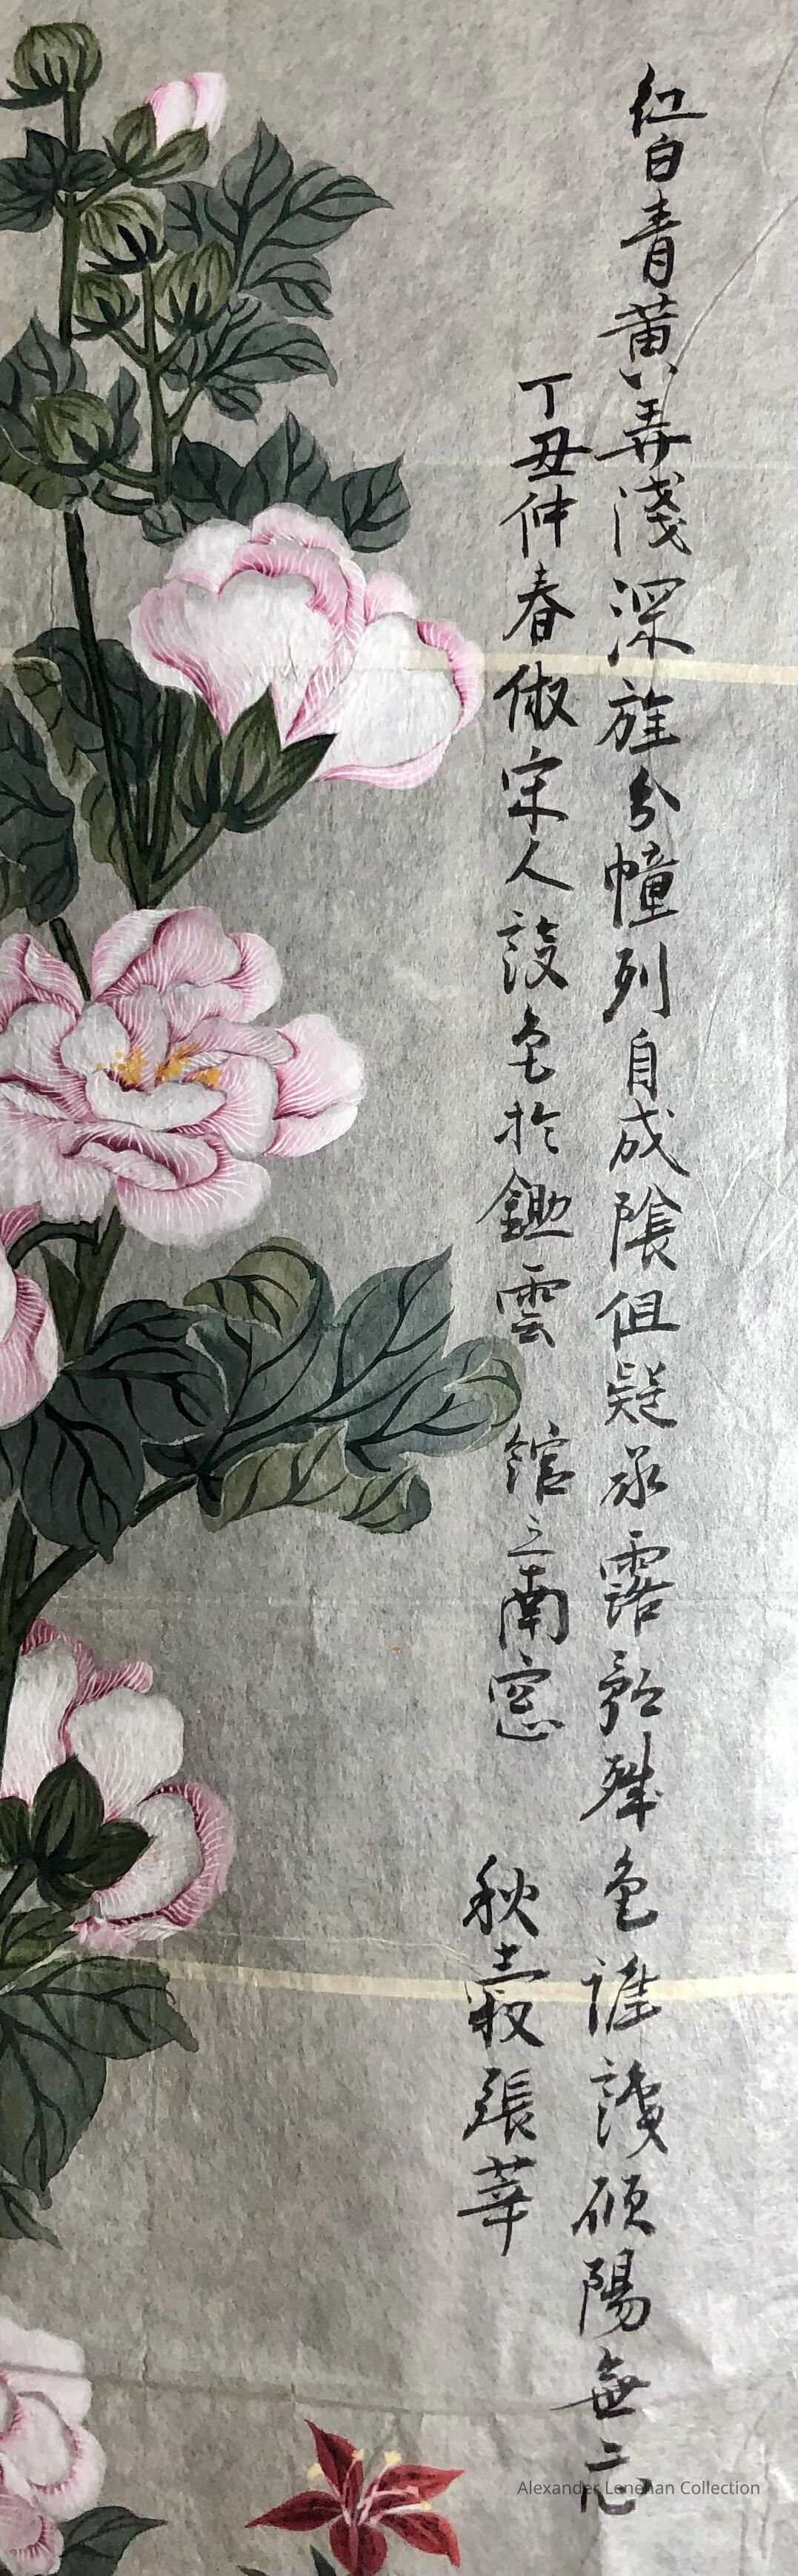 紅白青黄弄淺深旌分幢列自成陰但疑承露矜殊色誰識傾陽無二心
丁丑仲春倣宋人設色於鋤雲館之南窓
秋穀張華
Alexander Lenehan Collection